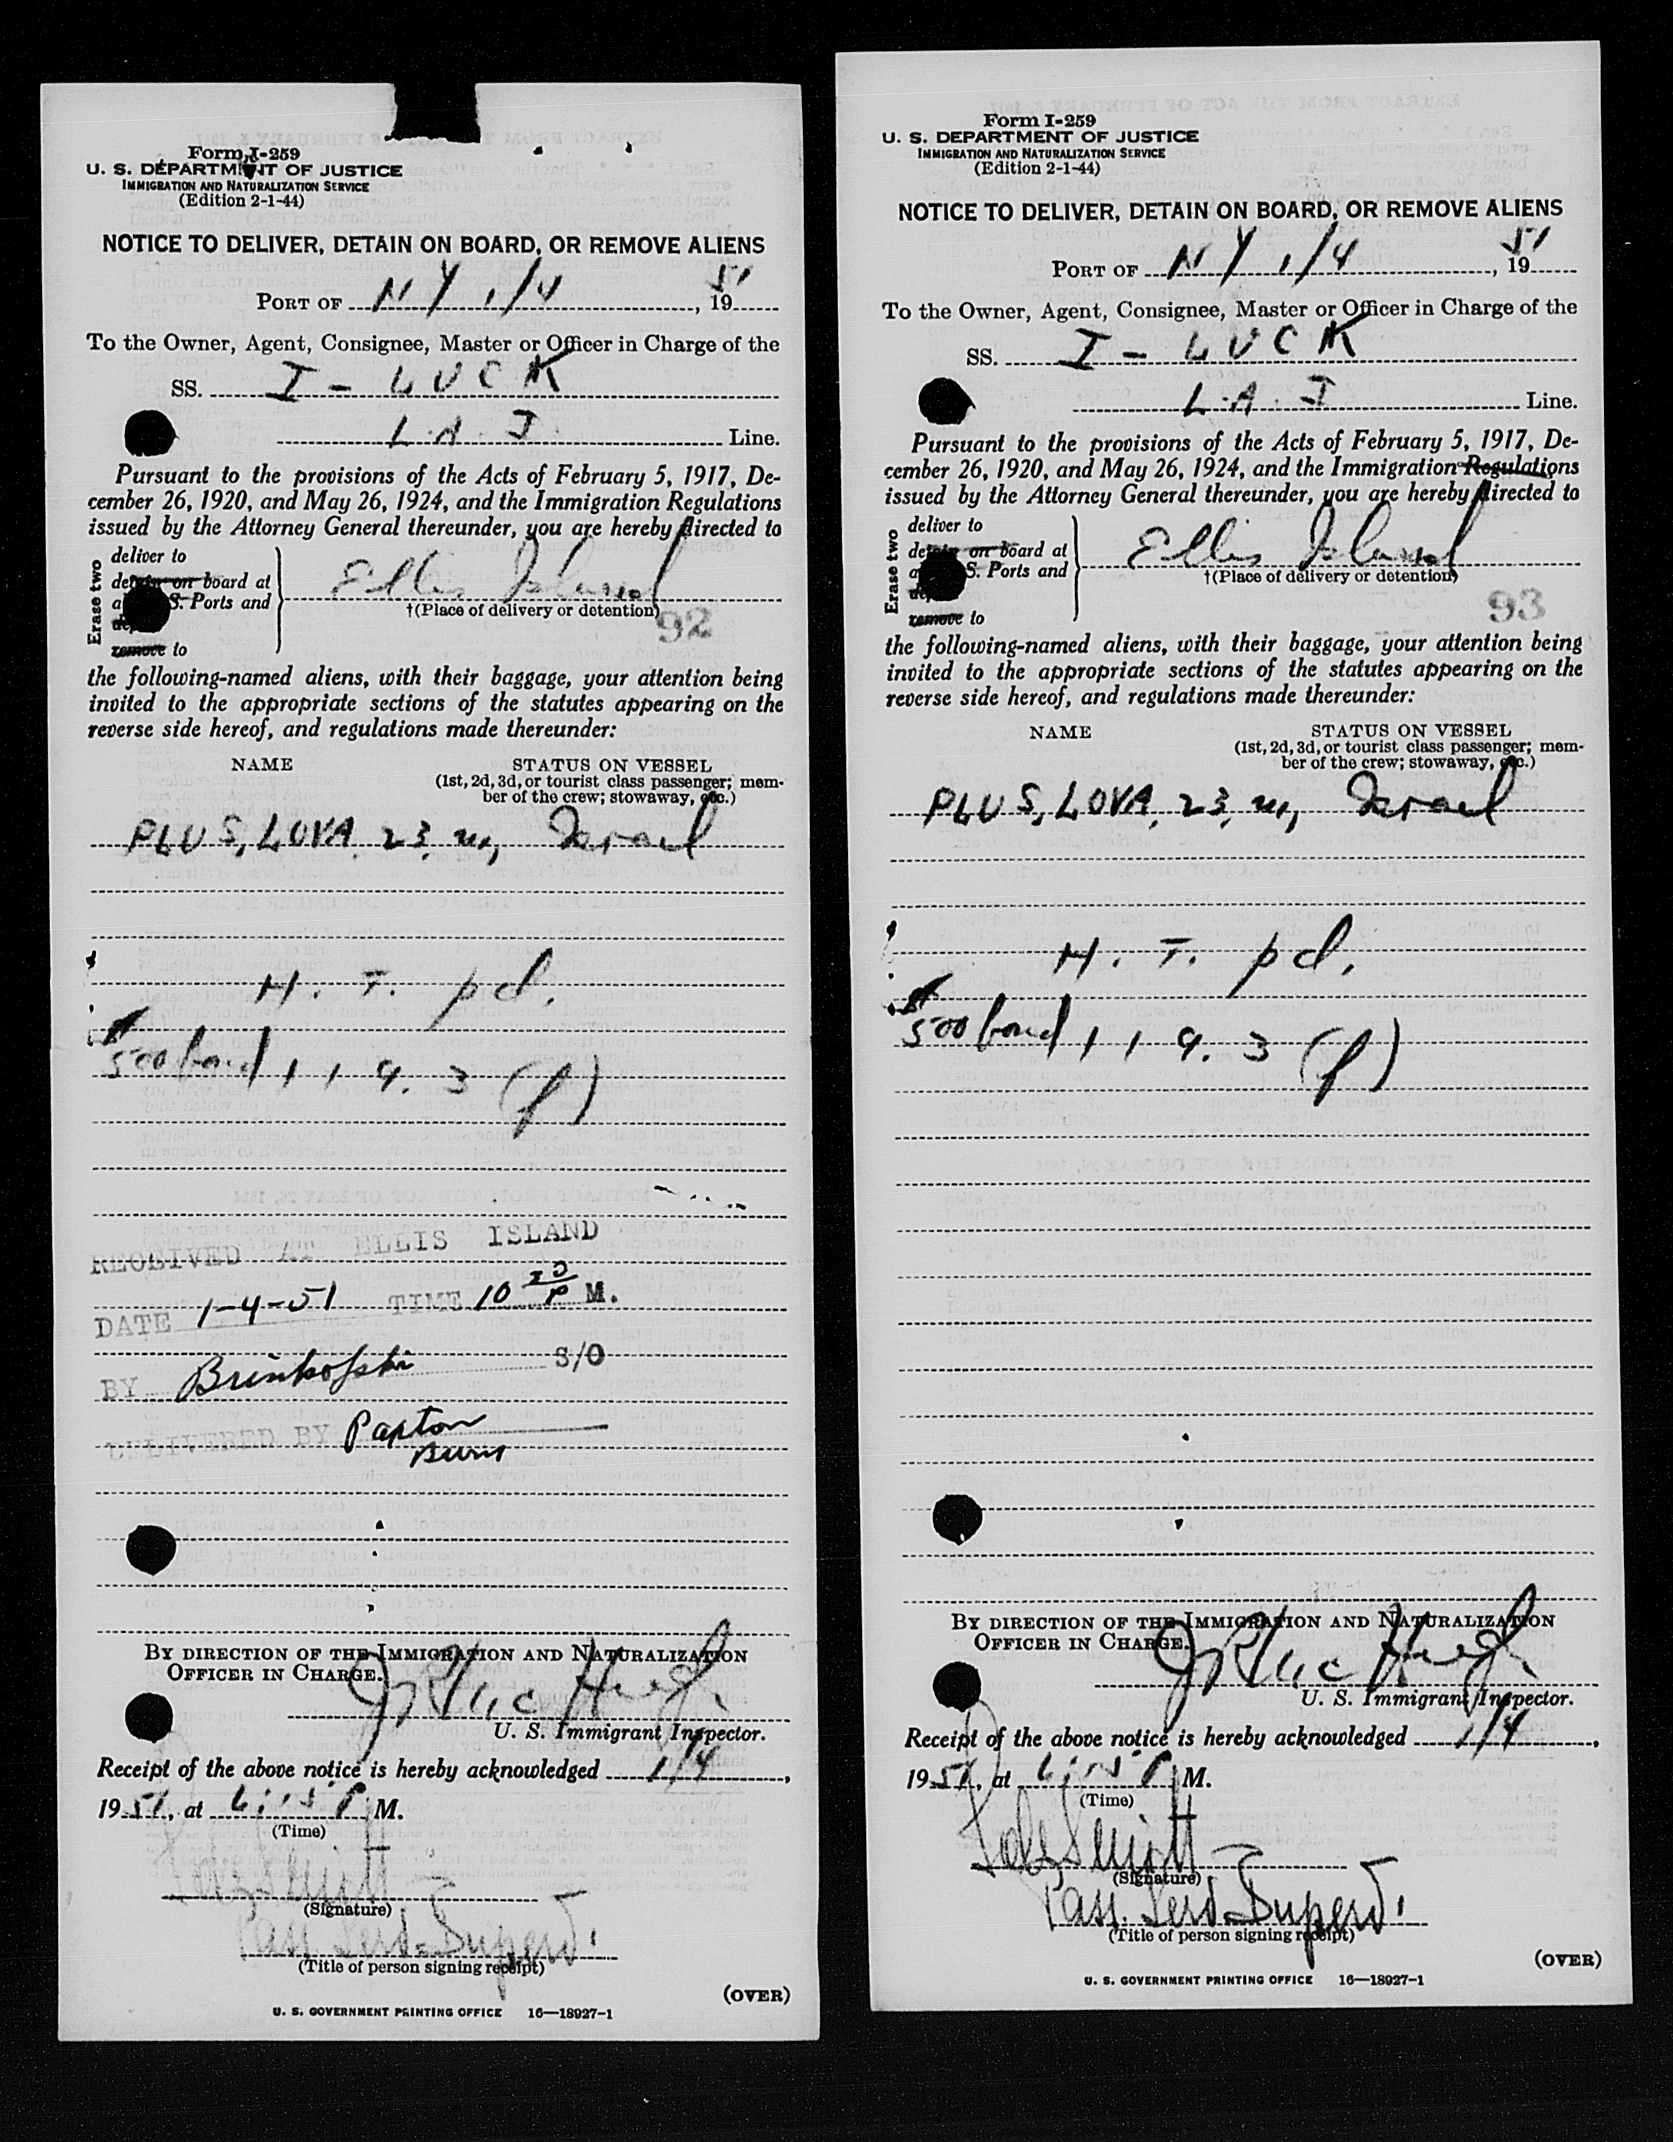 Form I-259
U. S. DEPARTMENT OF JUSTICE
IMMIGRATION AND NATURALIZATION SERVICE
(Edition 2-1-44)
NOTICE TO DELIVER, DETAIN ON BOARD, OR REMOVE ALIENS
PORT OF N Y 1/4, 1951
To the Owner, Agent, Consignee, Master or Officer in Charge of the
SS. I - LUCK
L. A. I Line.
Pursuant to the provisions of the Acts of February 5, 1917, De-
cember 26, 1920, and May 26, 1924, and the Immigration Regulations
issued by the Attorney General thereunder, you are hereby directed to
Erase two
deliver to
detain on board at
S. Ports and
remove to
Ellis Island
†(Place of delivery or detention)
92
the following-named aliens, with their baggage, your attention being
invited to the appropriate sections of the statutes appearing on the
reverse side hereof, and regulations made thereunder:
NAME STATUS ON VESSEL
(1st, 2d, 3d, or tourist class passenger; mem-
ber of the crew; stowaway, etc.)
PLUS, LOVA, 23, m, Israel
H. T. pd.
$500 bond 1 1 9. 3 (f)
RECEIVED AT ELLIS ISLAND
DATE 1-4-51 TIME 10 P M.
BY Brinkofski S/O
DELIVERED BY Paxton
Burns
BY DIRECTION OF THE IMMIGRATION AND NATURALIZATION
OFFICER IN CHARGE.
U. S. Immigrant Inspector.
Receipt of the above notice is hereby acknowledged 1/4,
1951, at 6:15 P M.
(Time)
(Signature)
Pass. Serv. Superv.
(Title of person signing receipt)
(OVER)
U. S. GOVERNMENT PRINTING OFFICE 16—18927-1
Form I-259
U. S. DEPARTMENT OF JUSTICE
IMMIGRATION AND NATURALIZATION SERVICE
(Edition 2-1-44)
NOTICE TO DELIVER, DETAIN ON BOARD, OR REMOVE ALIENS
PORT OF N Y 1/4, 1951
To the Owner, Agent, Consignee, Master or Officer in Charge of the
SS. I - LUCK
L. A. I Line.
Pursuant to the provisions of the Acts of February 5, 1917, De-
cember 26, 1920, and May 26, 1924, and the Immigration Regulations
issued by the Attorney General thereunder, you are hereby directed to
Erase two
deliver to
on board at
S. Ports and
remove to
Ellis Island
†(Place of delivery or detention)
93
the following-named aliens, with their baggage, your attention being
invited to the appropriate sections of the statutes appearing on the
reverse side hereof, and regulations made thereunder:
NAME STATUS ON VESSEL
(1st, 2d, 3d, or tourist class passenger; mem-
ber of the crew; stowaway, etc.)
PLUS, LOVA, 23, m, Israel
H. T. pd.
$500 bond 1 1 9. 3 (f)
BY DIRECTION OF THE IMMIGRATION AND NATURALIZATION
OFFICER IN CHARGE.
U. S. Immigrant Inspector.
Receipt of the above notice is hereby acknowledged 1/4,
1951, at 6:15 P M.
(Time)
(Signature)
Pass. Serv. Superv.
(Title of person signing receipt)
(OVER)
U. S. GOVERNMENT PRINTING OFFICE 16—18927-1